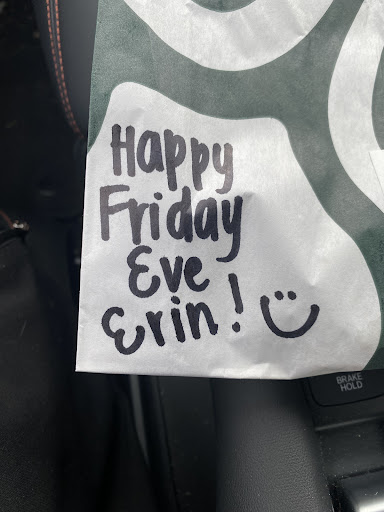 Happy
Friday
Eve
Erin!
BRAKE
HOLD